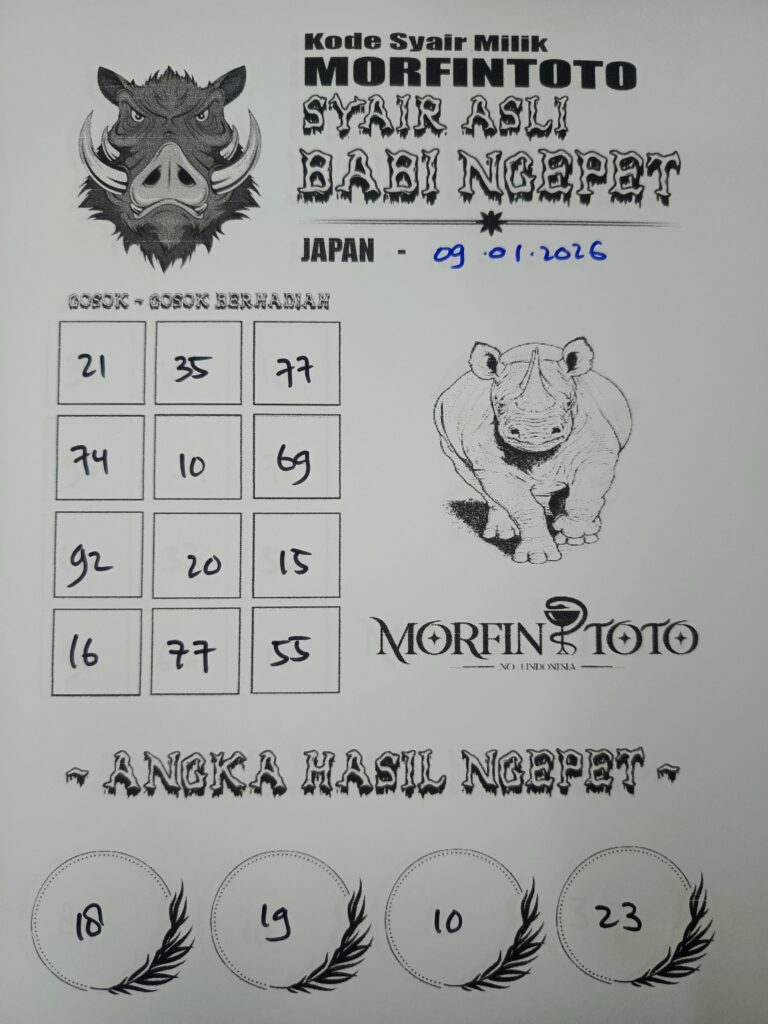 Kode Syair Milik
MORFINTOTO
SYAIR ASLI
BABI NGEPET
JAPAN - 09.01.2026
GOSOK - GOSOK BERHADIAH
21 35 77
74 10 69
92 20 15
16 77 55
MORFIN TOTO
NO 1 INDONESIA
~ ANGKA HASIL NGEPET ~
18 19 10 23